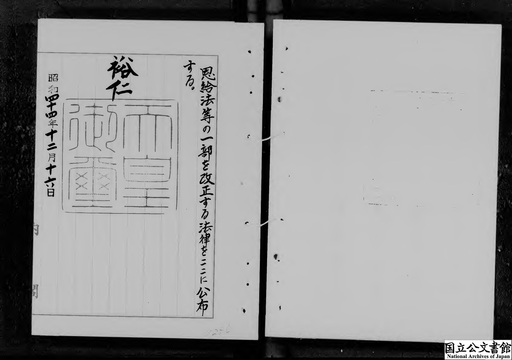 恩給法等の一部を改正する法律をここに公布
する。
裕仁
天皇
御璽
昭和四十四年十二月十六日
内閣
国立公文書館
National Archives of Japan